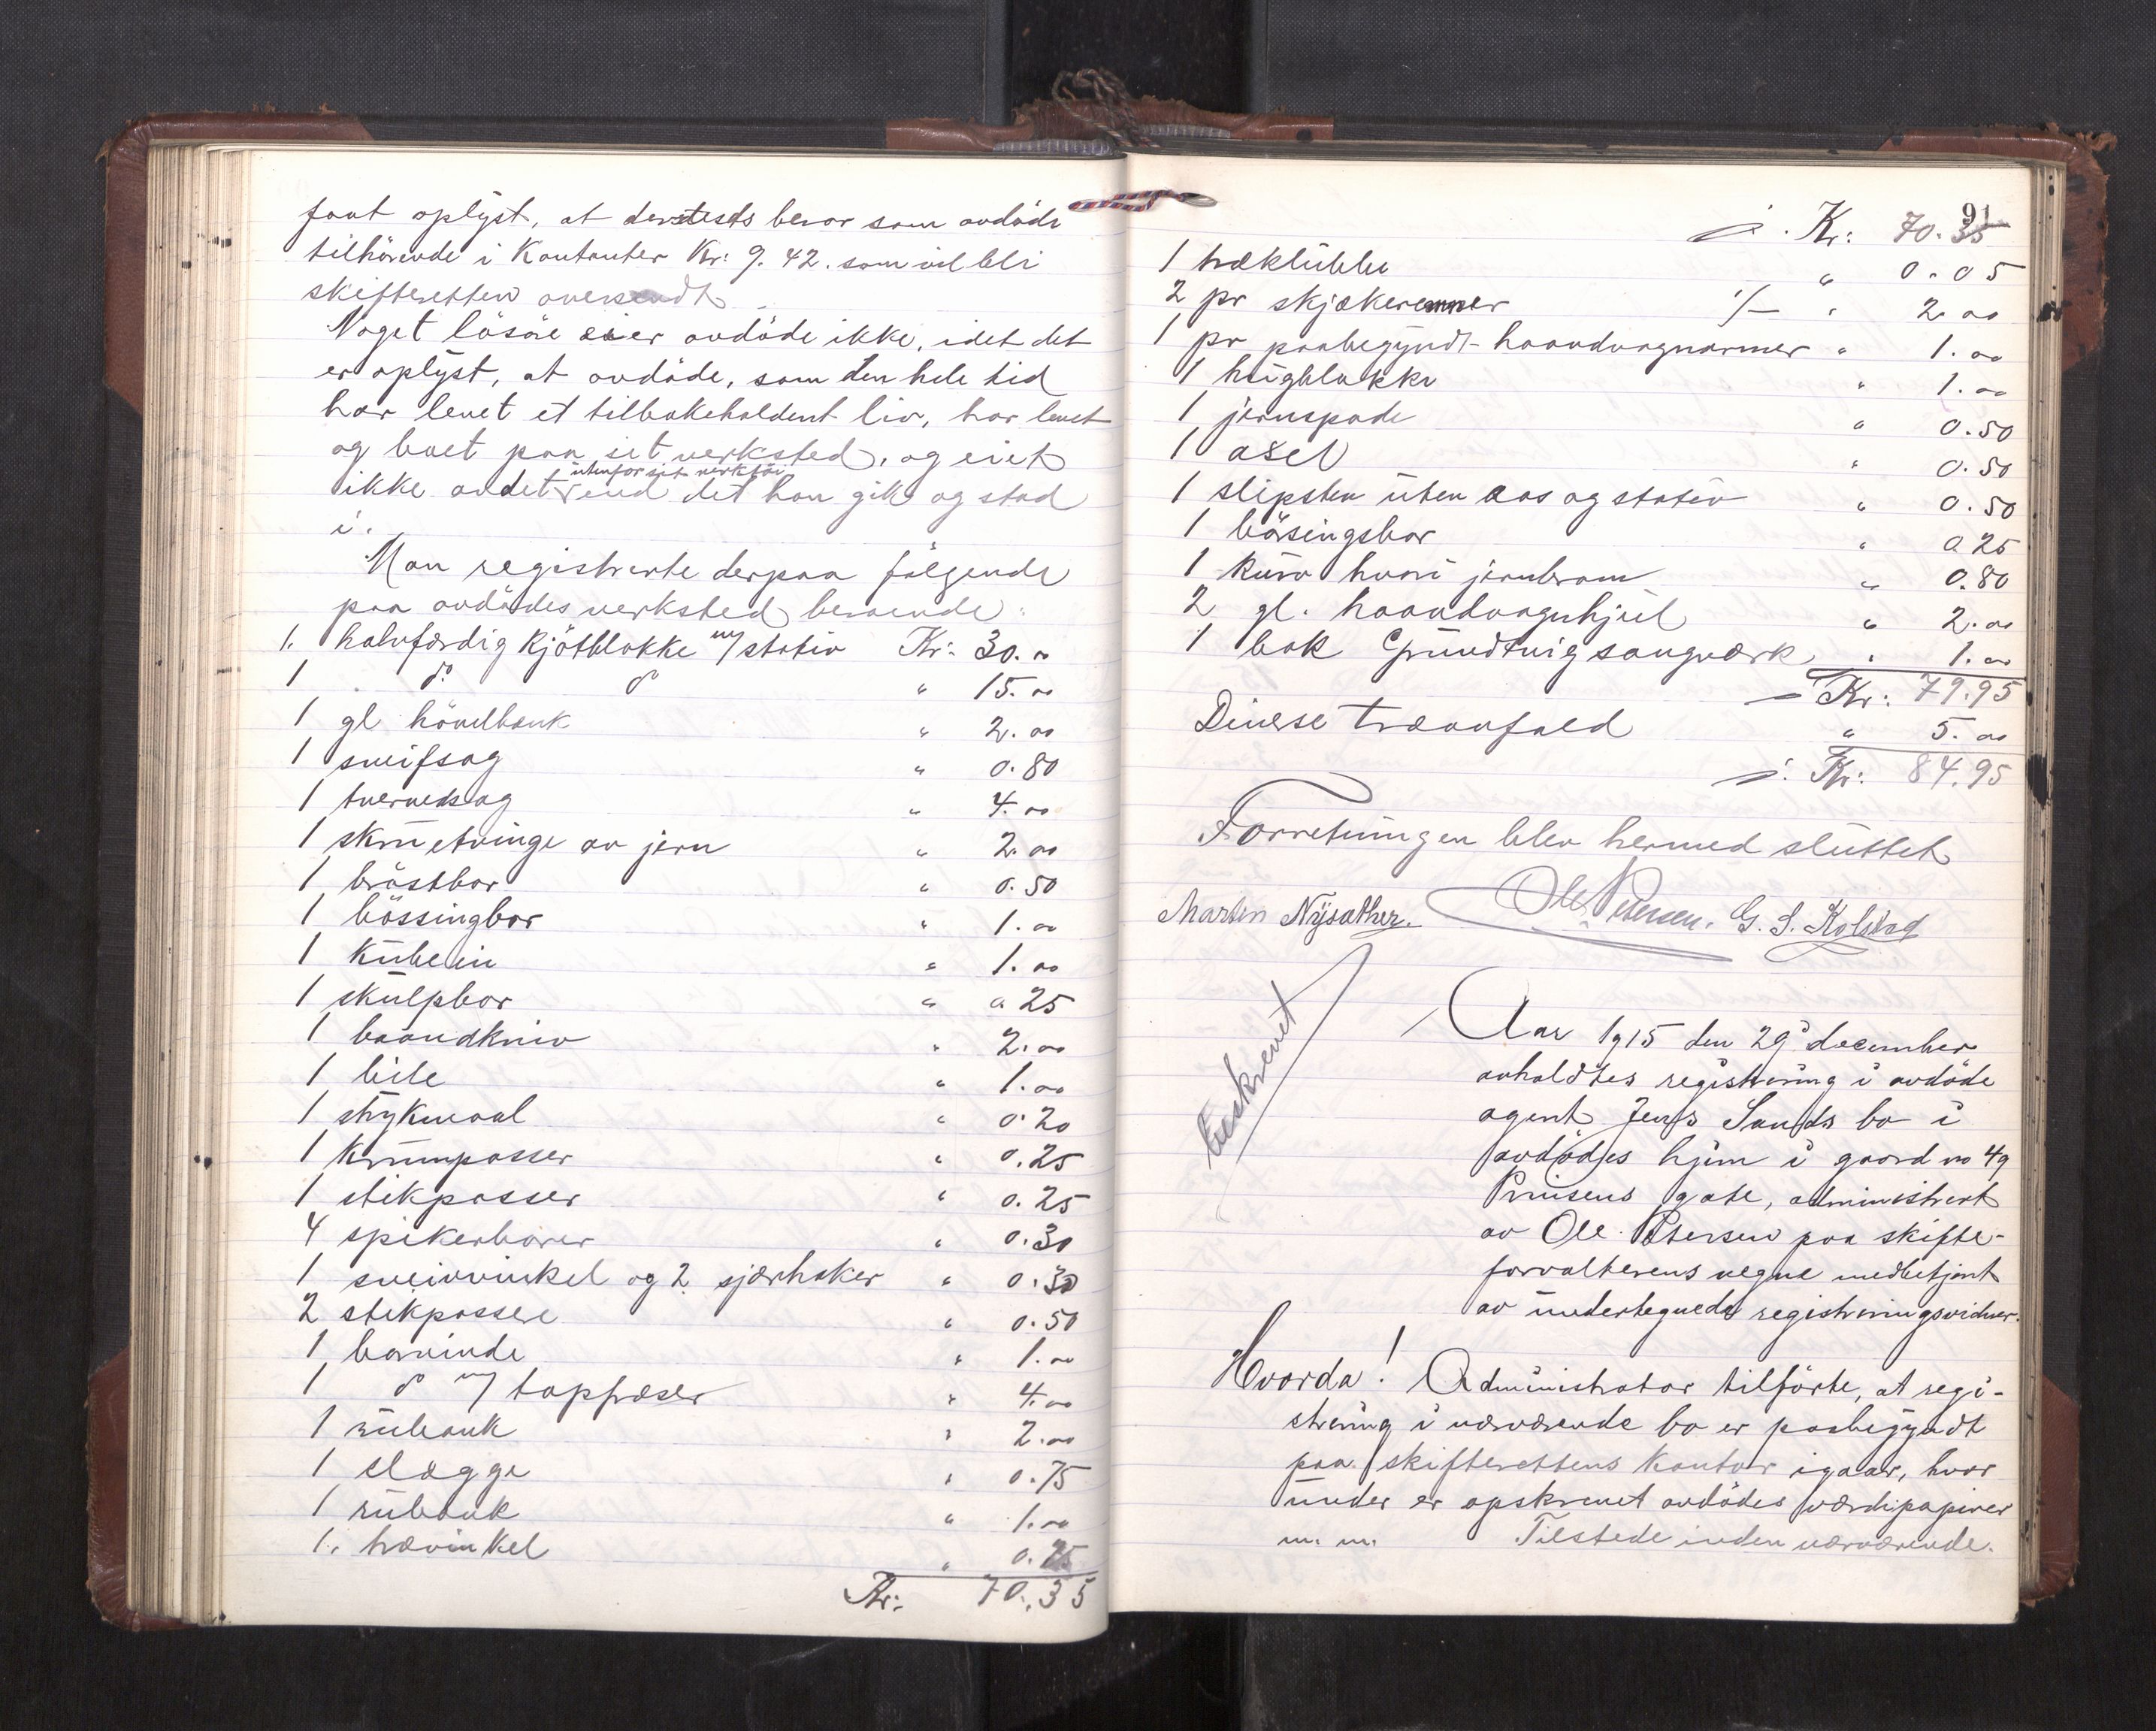 fant oplyst, at dersteds beror som avdöde
tilhörende i Kontanter Kr: 9.42. som vil bli
skifteretten oversendt
Noget lösöre eier avdöde ikke, idet det
er oplyst, at avdöde, som den hele tid
har levet et tilbakeholdent liv, har levet
og boet paa sit verksted, og eiet
utenfor sit verktöi
ikke andet end det han gik og stod
i.
Man registrerte derpaa fölgende
paa avdödes verksted beroende:
1. halvfærdig Kjötblokke m/stativ Kr: 30.00
1 do do " 15.00
1 gl hövelbænk " 2.00
1 sveifsag " 0.80
1 tvervedsag " 4.00
1 skruetvinge av jern " 2.00
1 bröstbor " 0.50
1 bössingbor " 1.00
1 Kubein " 1.00
1 skulpbor " 0 25
1 baandkniv " 2.00
1 bile " 1.00
1 strykmaal " 0.20
1 Krumpasser " 0.25
1 stikpasser " 0.25
4 spikerborer " 0.30
1 sveivvinkel og 2 sjærhaker " 0.30
2 stikpassere " 0.50
1 borvinde " 1.00
1 do m/ tapfræser " 4.00
1 rubank " 2.00
1 slægge " 0.75
1 rubank " 1.00
1. trævinkel " 0.25
Kr: 70.35
91
Kr: 70.35
1 træklubbe " 0.05
2 pr skjækeremner 1/- " 2.00
1 pr paabegyndt haandvognarmer " 1.00
1 hugblokke " 1.00
1 jernspade " 0.50
1 øsel " 0.50
1 slipsten uten aas og stativ " 0.50
1 bösingsbor " 0 25
1 Kurv hvori jernkram " 0.80
2 gl. haandvognhjul " 2.00
1 bok Grundtvig sangværk " 1.00
Kr: 79.95
Diverse træavfald " 5.00
Kr: 84.95
Forretningen blev hermed sluttet
Martin Nysæther. Ole Petersen. G. S. Kolstad
Utskrevet
Aar 1915 den 29 december
avholdtes registrering i avdöde
agent Jens Sands bo i
avdödes hjem i gaard no 49
Prinsens gate, administrert
av Ole Petersen paa skifte-
forvalterens vegne medbetjent
av undertegnede registreringsvidner.
Hvorda! Administrator tilförte, at regi-
strering i nærværende bo er paabegyndt
paa skifterettens Kontor igaar, hvor
under er opskrevet avdödes værdipapirer
m. m. Tilstede inden nærværende.